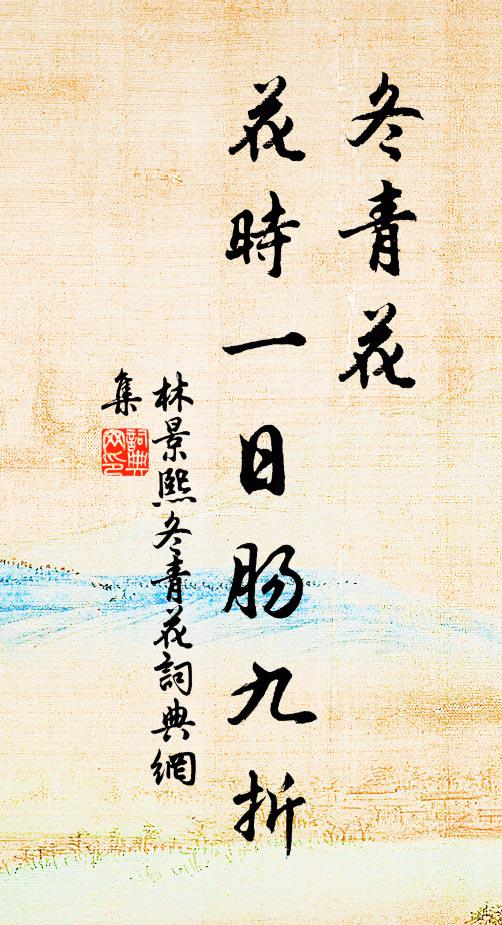 冬青花
花時一日肠九折
林景熙冬青花詞典網
集
詞典
网印